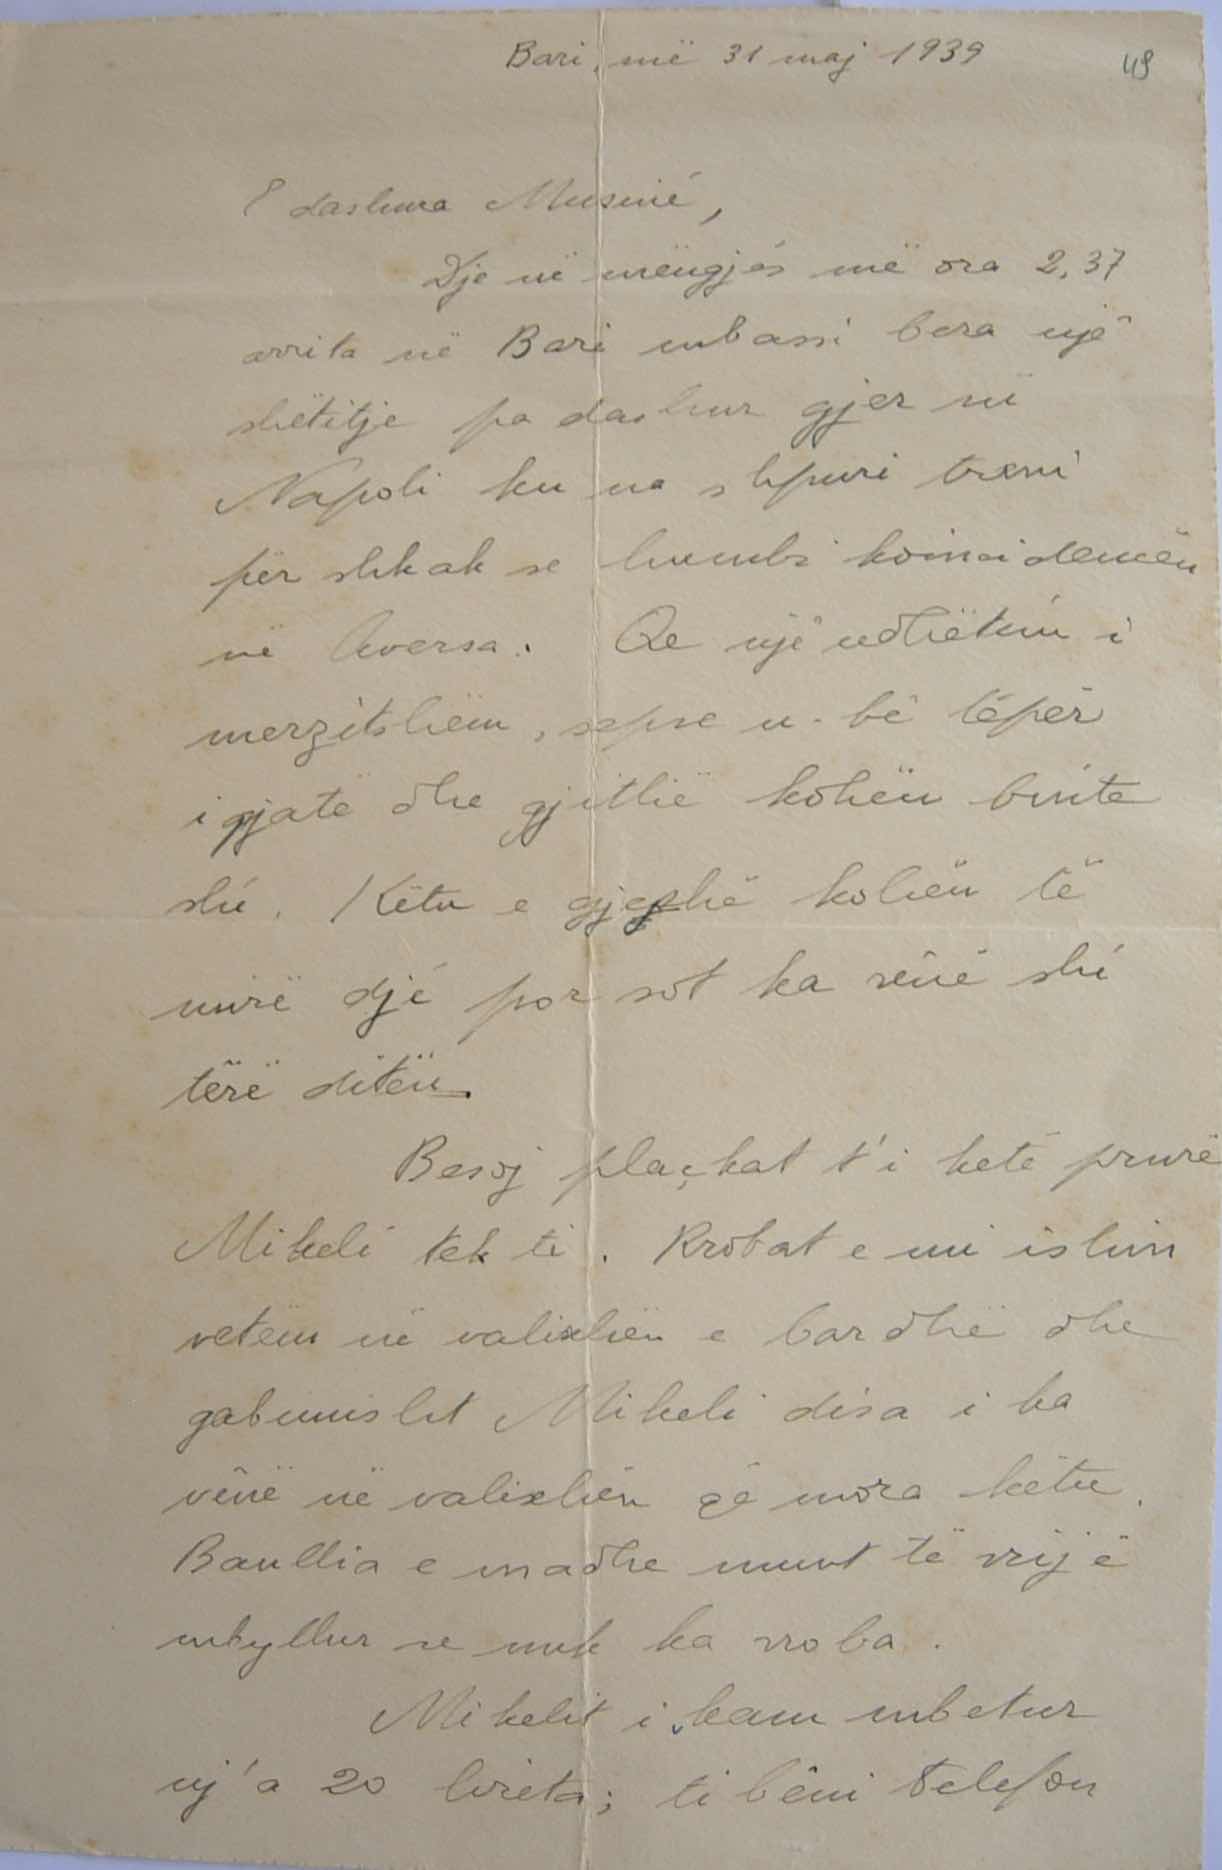 Bari, më 31 maj 1939
48
E dashura Musiné,
Dje në mëngjés më ora 2,37
arrita në Bari mbassi bera një
shëtitje pa dashur gjer në
Napoli ku na shpuri treni
për shkak se humbi koincidencën
në Aversa. Qe një udhëtim i
merzitshëm, sepse u-bë tépër
i gjatë dhe gjithë kohën binte
shi. Këtu e gjeshë kohën të
mirë djé por sot ka rënë shi
tërë ditën.
Besoj plaçkat t'i ketë prurë
Mikeli tek ti. Rrobat e mi ishin
vetëm në valixhën e bardhë dhe
gabimisht Mikeli disa i ka
vënë në valixhën që mora këtu.
Baullia e madhe munt të rrijë
mbyllur se nuk ka rroba.
Mikelit i kam mbetur
nj'a 20 lireta; ti bëni telefon